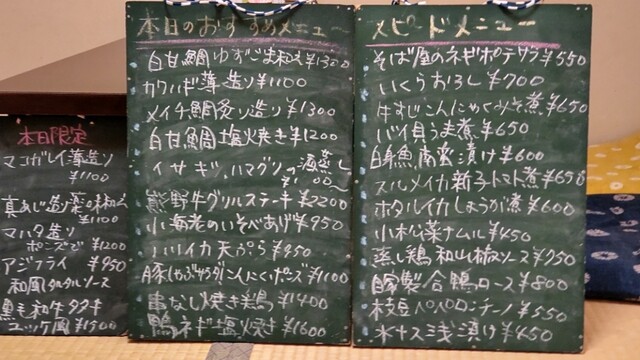 本日限定
マコガレイ薄造り
¥1100
真あじ造り薬味和え
¥1100
マハタ造り
ポンズで ¥1200
アジフライ ¥950
和風タルタルソース
黒毛和牛タタキ
ユッケ風 ¥1500
本日のおすすめメニュー
白甘鯛ゆずごま和え ¥1300
カワハギ薄造り ¥1100
メイチ鯛炙り造り ¥1300
白甘鯛塩焼き ¥1200
イサギ、ハマグリの酒蒸し
熊野牛グリルステーキ ¥2200
小海老のいそべあげ ¥950
バイイカ天ぷら ¥950
豚しゃぶサラダにんにくポンズ ¥1100
串なし焼き鶏 ¥1400
鴨ネギ塩焼き ¥1600
スピードメニュー
そば屋のネギポテサラ ¥550
いくらおろし ¥700
牛すじこんにゃくみそ煮 ¥650
バイ貝うま煮 ¥650
白身魚南蛮漬け ¥600
スルメイカ新子トマト煮 ¥650
ホタルイカしょうが煮 ¥600
小松菜ナムル ¥450
蒸し鶏 和山椒ソース ¥750
燻製合鴨ロース ¥800
枝豆ペペロンチーノ ¥550
水ナス浅漬け ¥450